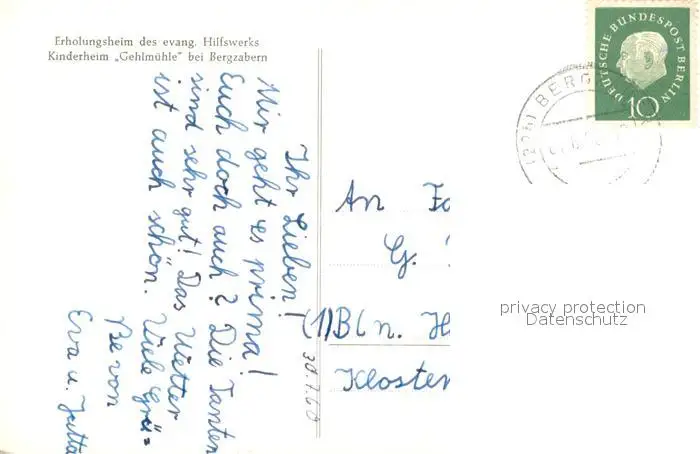 Erholungsheim des evang. Hilfswerks
Kinderheim „Gehlmühle" bei Bergzabern
Ihr Lieben!
Mir geht es prima!
Euch doch auch? Die Tanten
sind sehr gut! Das Wetter
ist auch schön. Viele Grü=
ße von
Eva u. Jutta
30.7.60
DEUTSCHE BUNDESPOST BERLIN
10
BERG
An
G.
(1) Bln. H
Kloster
privacy protection
Datenschutz